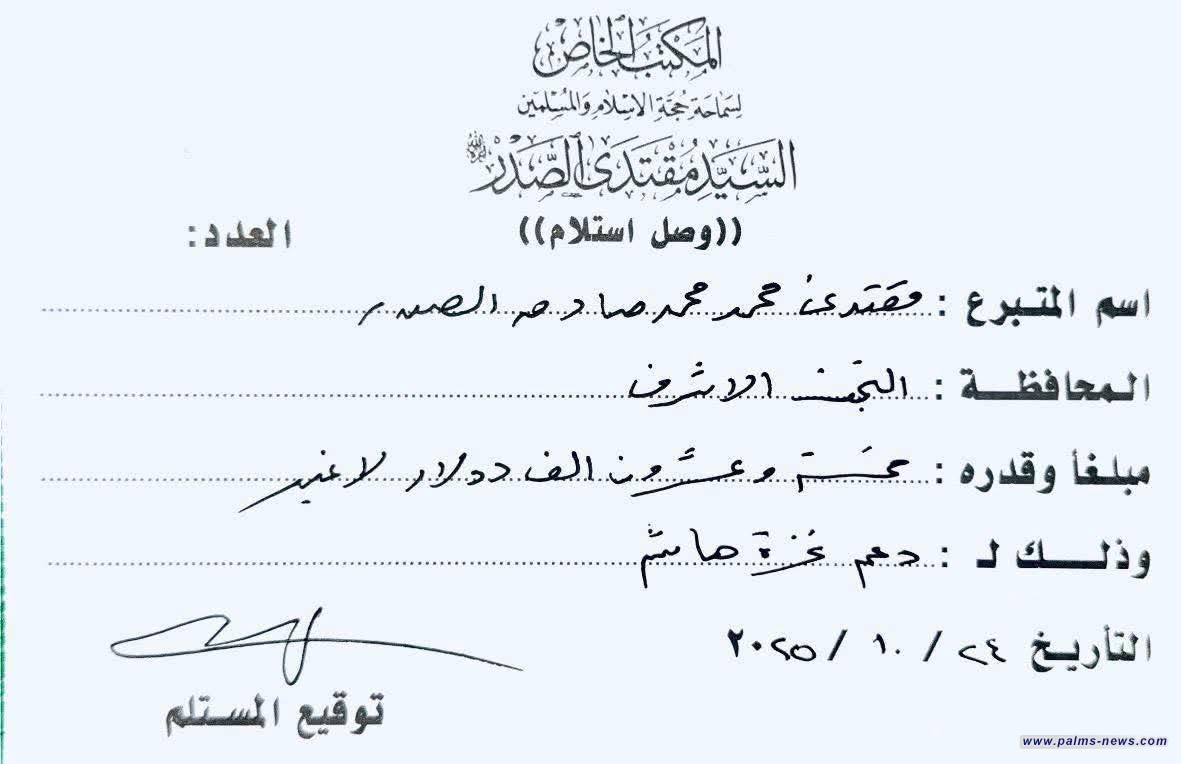 المكتب الخاص
لسماحة حجة الإسلام والمسلمين
السيد مقتدى الصدر
((وصل استلام))
العدد:
اسم المتبرع : مقتدى محمد محمد صادق الصدر
المحافظة : النجف الاشرف
مبلغاً وقدره : خمسة وعشرون الف دولار لاغير
وذلك لـ : دعم غزة هاشم
التأريخ ٢٤ / ١٠ / ٢٠٢٥
توقيع المستلم
www.palms-news.com